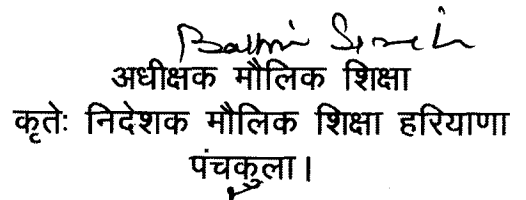 अधीक्षक मौलिक शिक्षा
कृतेः निदेशक मौलिक शिक्षा हरियाणा
पंचकुला।